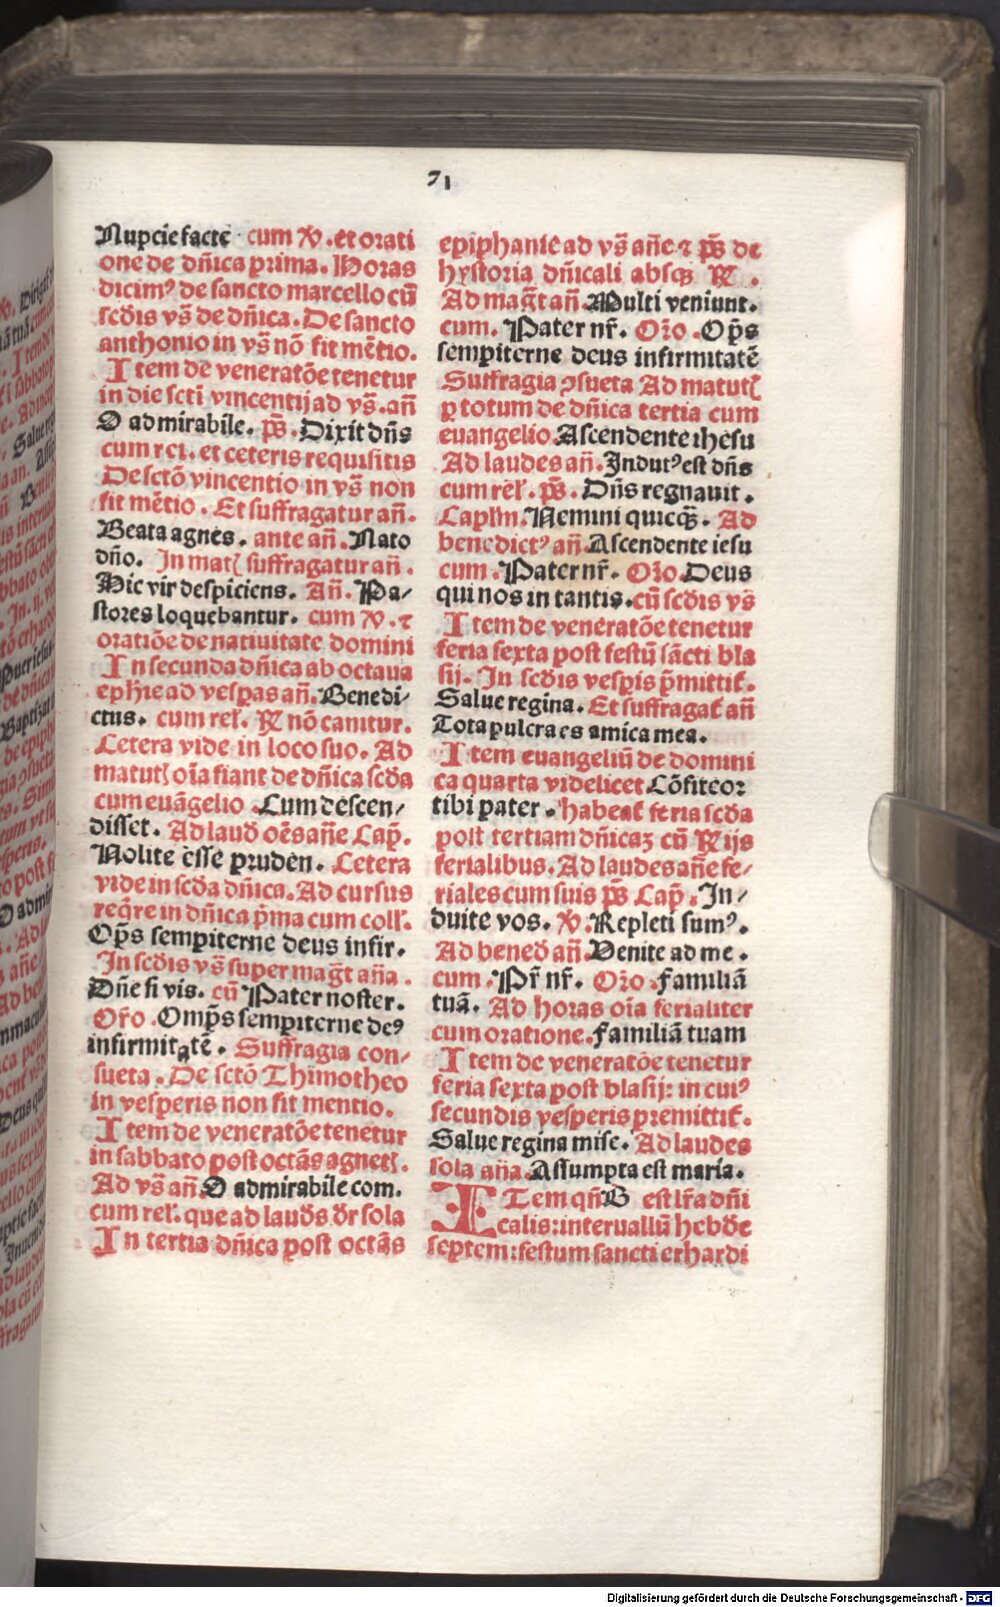 71
Nupcie facte. cum ℣. et orati
one de dñica prima. Horas
dicimꝰ de sancto marcello cū
scd̄is vs̄ de dñica. De sancto
anthonio in vs̄ nō fit mētio.
Item de veneratōe tenetur
in die scti vincentij ad vs̄. añ
O admirabile. p̄s. Dixit dñs
cum rcl. et ceteris requisitis
De sctō vincentio in vs̄ non
fit mētio. Et suffragatur añ.
Beata agnes. ante añ. Nato
dño. In matꝭ suffragatur añ.
Hic vir despiciens. Añ. Pa/
stores loquebantur. cum ℣. ⁊
oratiōe de natiuitate domini
In secunda dñica ab octaua
ephie ad vesperas añ. Benedi/
ctus. cum rel̄. ℟ nō canitur.
Cetera vide in loco suo. Ad
matutꝭ oīa fiant de dñica scd̄a
cum euāgelio. Cum descen/
disset. Ad laud̄ oēs añe Cap̄.
Nolite esse pruden. Cetera
vide in scd̄a dñica. Ad cursus
req̄re in dñica p̄ma cum coll̄.
Op̄s sempiterne deus infir.
In scd̄is vs̄ super mag̅t aña.
Dñe si vis. cū Pater noster.
Or̄o. Omp̄s sempiterne deꝰ
infirmitatē. Suffragia con/
sueta. De sctō Thimotheo
in vesperis non fit mentio.
Item de veneratōe tenetur
in sabbato post octās agnetꝭ.
Ad vs̄ añ. O admirabile com.
cum rel̄. que ad laud̄s d̄r sola
In tertia dñica post octās
epiphanie ad vs̄ añe ⁊ p̄s de
hystoria dñicali absqꝫ ℟.
Ad mag̅t añ. Multi veniunt.
cum. Pater nr̄. Or̄o. Op̄s
sempiterne deus infirmitatē
Suffragia ꝯsueta Ad matutꝭ
ꝑ totum de dñica tertia cum
euangelio Ascendente ihesu
Ad laudes añ. Indutꝰ est dñs
cum rel̄. p̄s. Dñs regnauit.
Capl̄m. Nemini quicq̄ꝫ. Ad
benedictꝰ añ Ascendente iesu
cum. Pater nr̄. Or̄o. Deus
qui nos in tantis. cū scd̄is vs̄
Item de veneratōe tenetur
feria sexta post festū sācti bla
sij. In scd̄is vesꝑis p̄mittit̄.
Salue regina. Et suffragat̄ añ
Tota pulcra es amica mea.
Item euangeliū de domini
ca quarta videlicet Cōfiteor
tibi pater. habeat̄ feria scd̄a
post tertiam dñicaꝫ cū ℟ijs
ferialibus. Ad laudes añe fe/
riales cum suis p̄s Cap̄. In/
duite vos. ℣. Repleti sumꝰ.
Ad bened̄ añ. Venite ad me.
cum. Pr̄ nr̄. Or̄o. familiā
tuā. Ad horas oīa ferialiter
cum oratione. familiā tuam
Item de veneratōe tenetur
feria sexta post blasij: in cuiꝰ
secundis vesperis premittit̄.
Salue regina mise. Ad laudes
sola aña. Assumpta est maria.
ITem qñ B est lr̄a dñi
calis: interuallū hebd̄e
septem: festum sancti erhardi
Digitalisierung gefördert durch die Deutsche Forschungsgemeinschaft - DFG